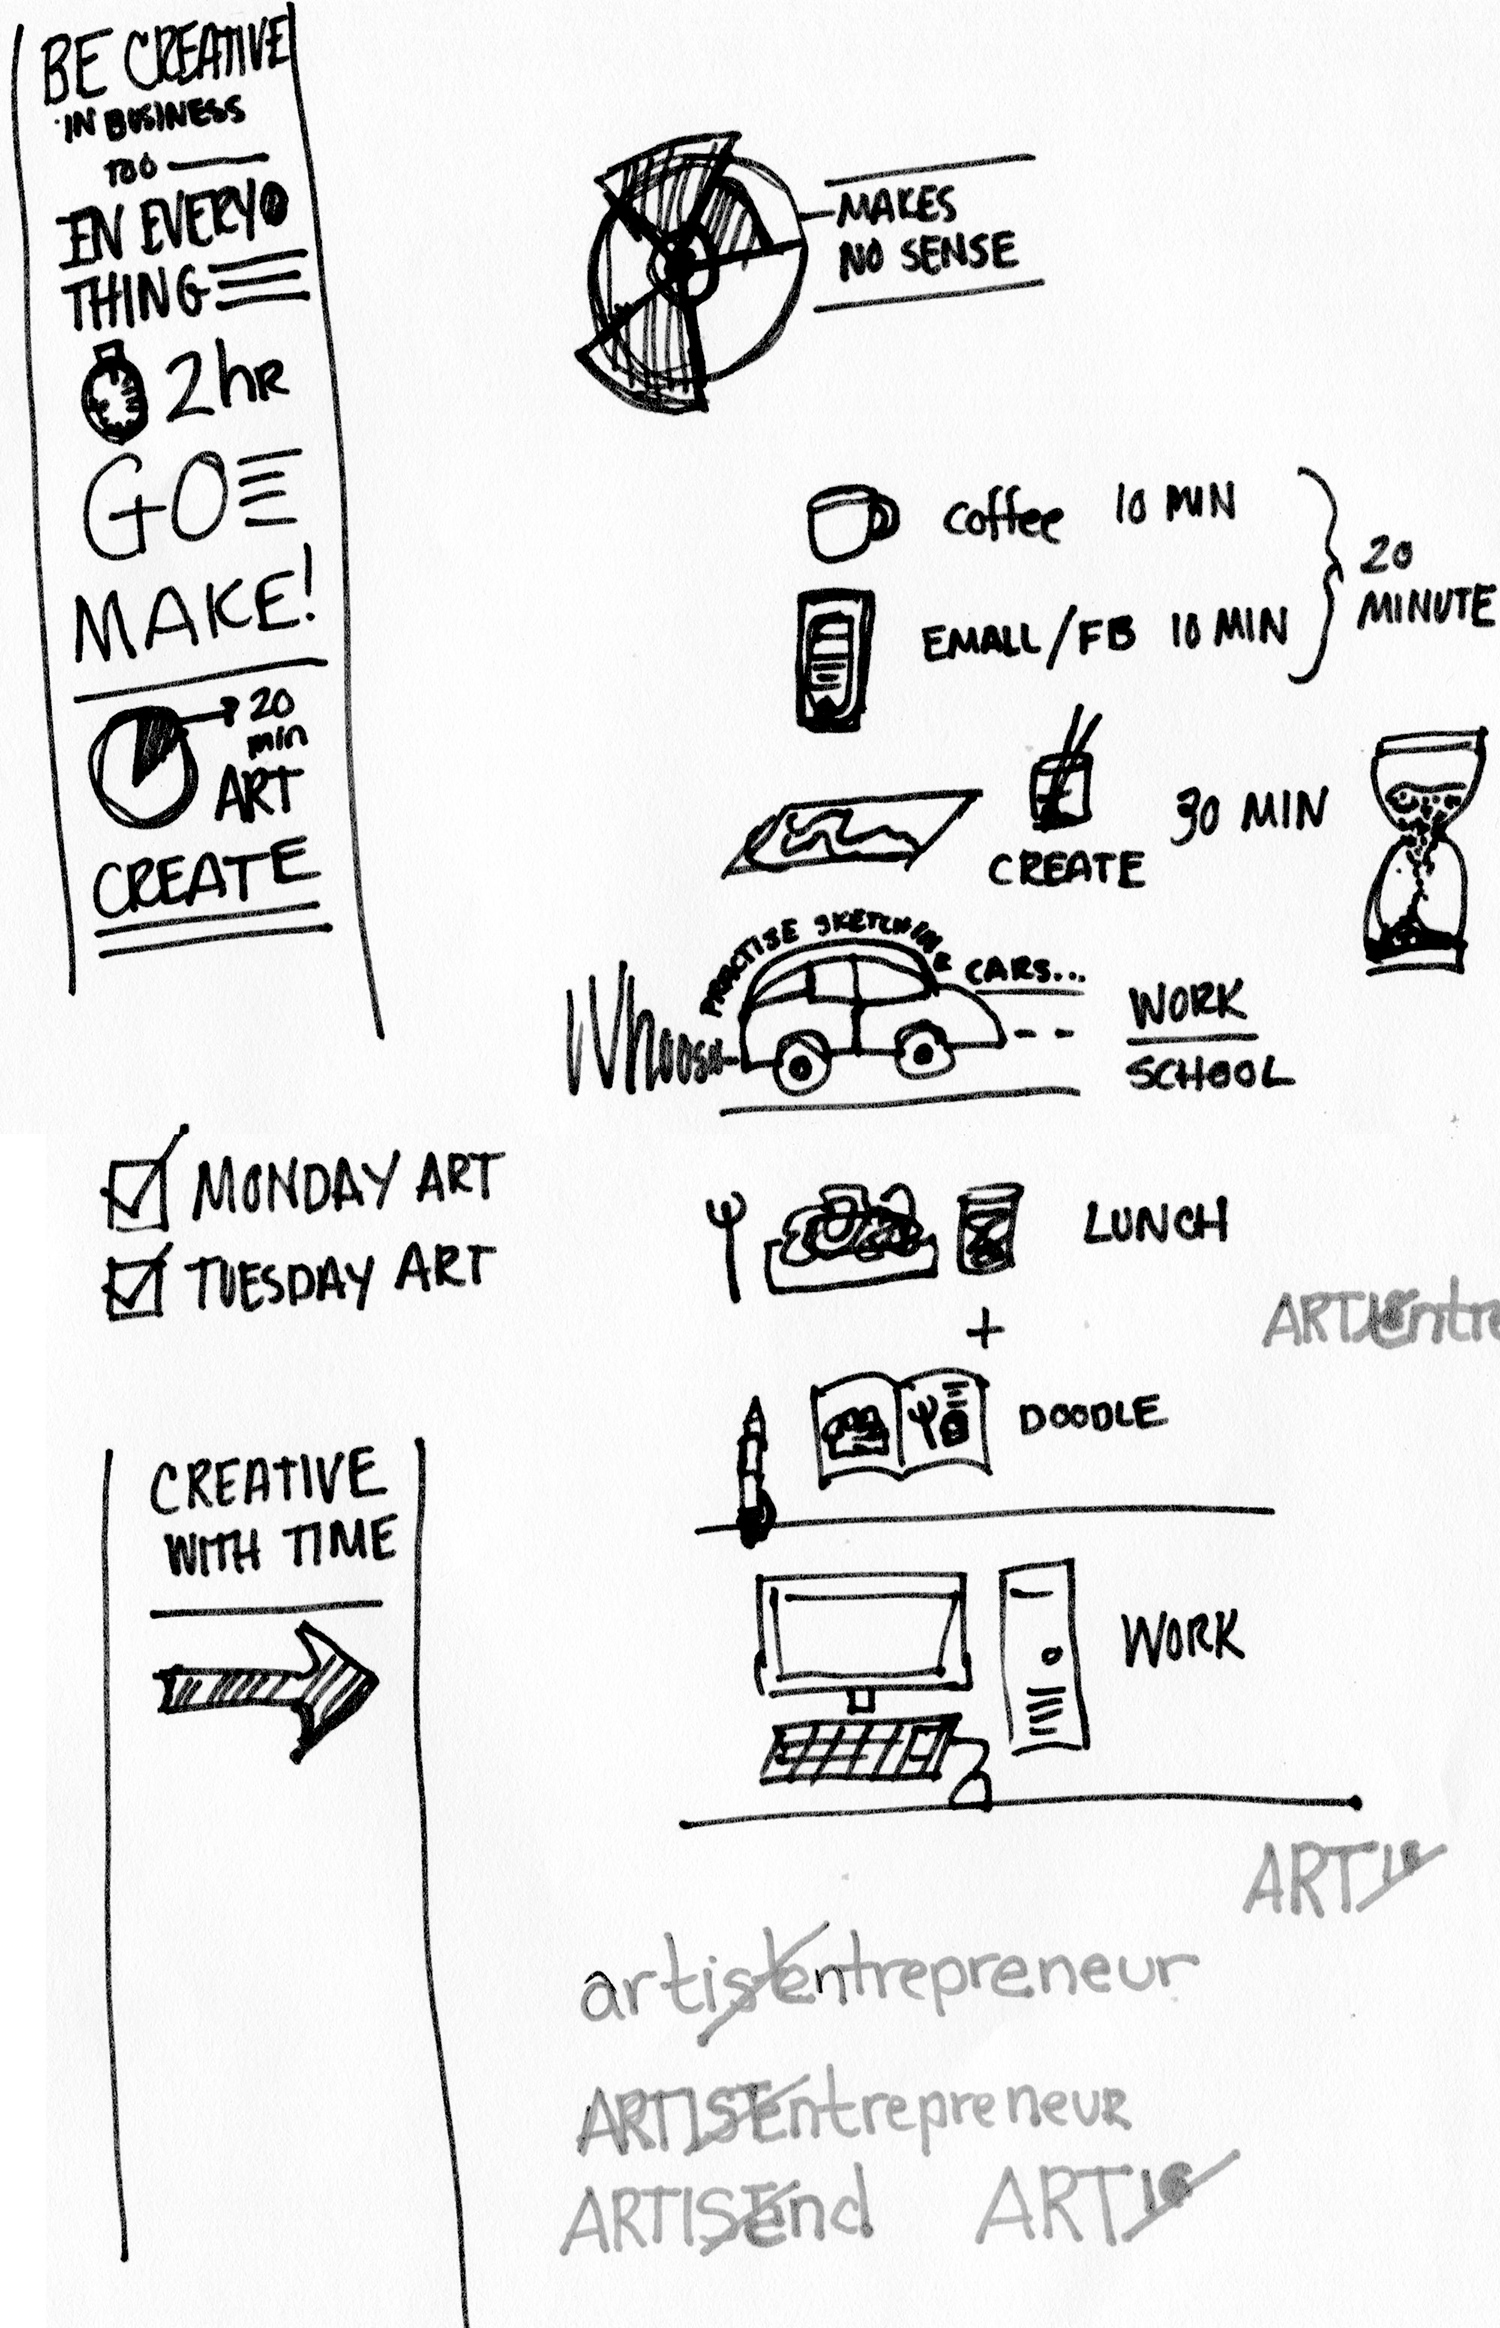 BE CREATIVE
IN BUSINESS
TOO
IN EVERY
THING
2hR
GO
MAKE!
20
min
ART
CREATE
MAKES
NO SENSE
coffee 10 MIN
EMAIL/FB 10 MIN
20
MINUTE
CREATE
30 MIN
PRACTISE SKETCHING CARS...
Whoosh
WORK
SCHOOL
MONDAY ART
TUESDAY ART
LUNCH
+
DOODLE
CREATIVE
WITH TIME
WORK
ART
artistentrepreneur
ARTISTentrepreneur
ARTIST
ART